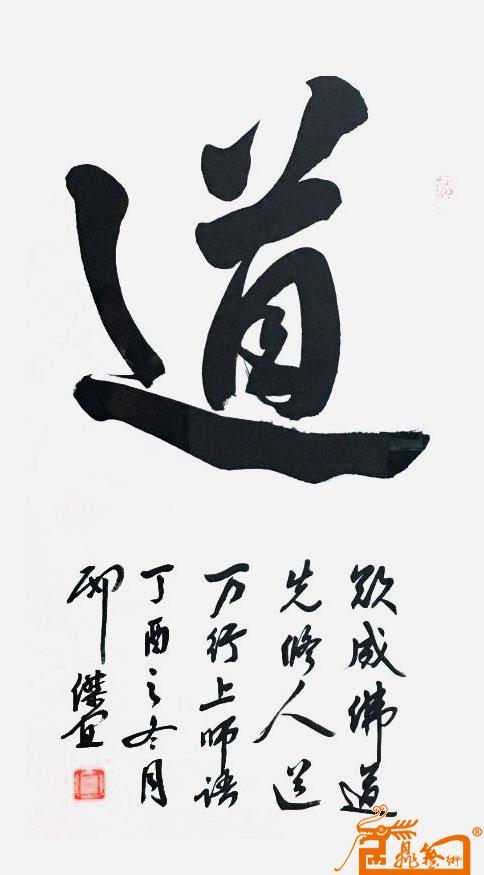 道
欲成佛道
先修人道
万行上师语
丁酉之冬月
邢傑宜